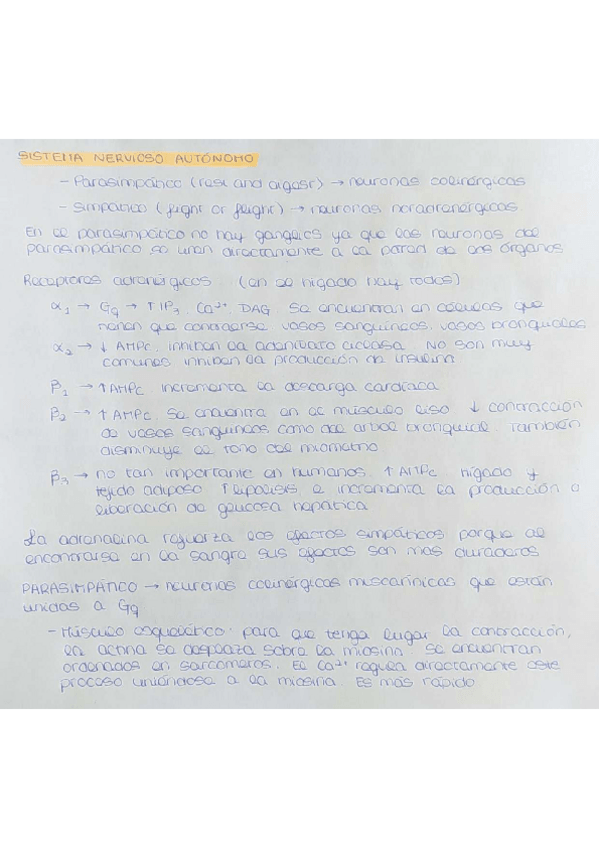 SISTEMA NERVIOSO AUTÓNOMO
- Parasimpático (rest and digest) → neuronas colinérgicas
- Simpático (fight or flight) → neuronas noradrenérgicas
En el parasimpático no hay ganglios ya que las neuronas del
parasimpático se unen directamente a la pared de los órganos
Receptores adrenérgicos. (en el hígado hay todos)
α1 → Gq → ↑IP3, Ca2+, DAG. Se encuentran en células que
tienen que contraerse vasos sanguíneos, vasos bronquiales
α2 → ↓ AMPc, inhiben la adenilato ciclasa. No son muy
comunes inhiben la producción de insulina
β1 → ↑AMPc incrementa la descarga cardíaca
β2 → ↑AMPc. Se encuentra en el músculo liso ↓ contracción
de vasos sanguíneos como del arbol bronquial. También
disminuye el tono del miometrio
β3 → no tan importante en humanos. ↑AMPc. hígado y
tejido adiposo ↑lipolisis e incrementa la producción o
liberación de glucosa hepática
La adrenalina refuerza los efectos simpáticos porque al
encontrarse en la sangre sus efectos son mas duraderos
PARASIMPÁTICO → neuronas colinérgicas muscarínicas que están
unidas a Gq
- Músculo esquelético: para que tenga lugar la contracción,
la actina se desplaza sobre la miosina. Se encuentran
ordenados en sarcómeros. El Ca2+ regula directamente este
proceso uniéndose a la miosina. Es más rápido